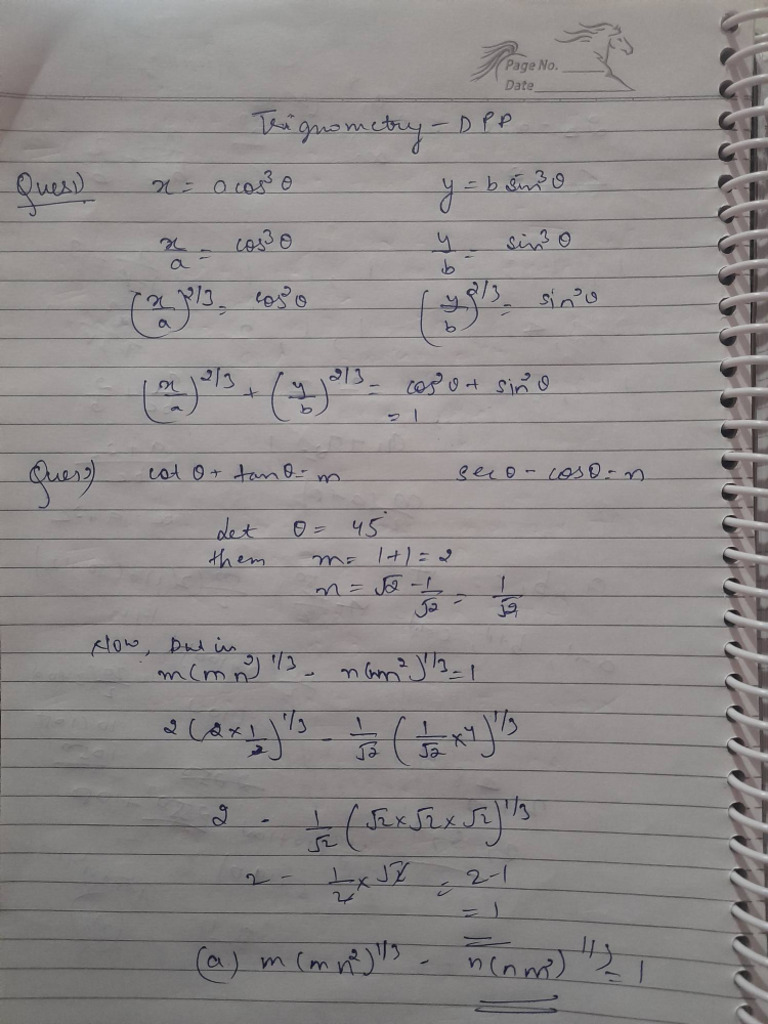 Page No.
Date
Trignometry - DPP
Ques1) x = a cos³θ y = b sin³θ
x/a = cos³θ y/b = sin³θ
(x/a)^2/3 = cos²θ (y/b)^2/3 = sin²θ
(x/a)^2/3 + (y/b)^2/3 = cos²θ + sin²θ
= 1
Ques2) cot θ + tanθ = m sec θ - cosθ = n
Let θ = 45°
then m = 1+1 = 2
n = √2 - 1/√2 = 1/√2
Now, put in
m(mn²)^1/3 - n(nm²)^1/3 = 1
2(2 × 1/2)^1/3 - 1/√2 (1/√2 × 4)^1/3
2 - 1/√2 (√2 × √2 × √2)^1/3
2 - 1/√2 × √2 = 2-1
= 1
(a) m(mn²)^1/3 - n(nm²)^1/3 = 1